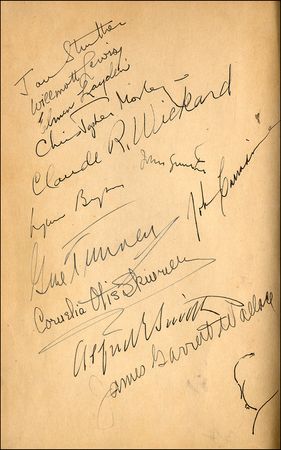 Jan Struther
Willmott Lewis
Elmer Layden
Christopher Morley
Claude R. Wickard
John Gunther
Lyman Bryson
John
Gene Tunney
Cornelia Otis Skinner
Alfred E Smith
James Garrett Wallace